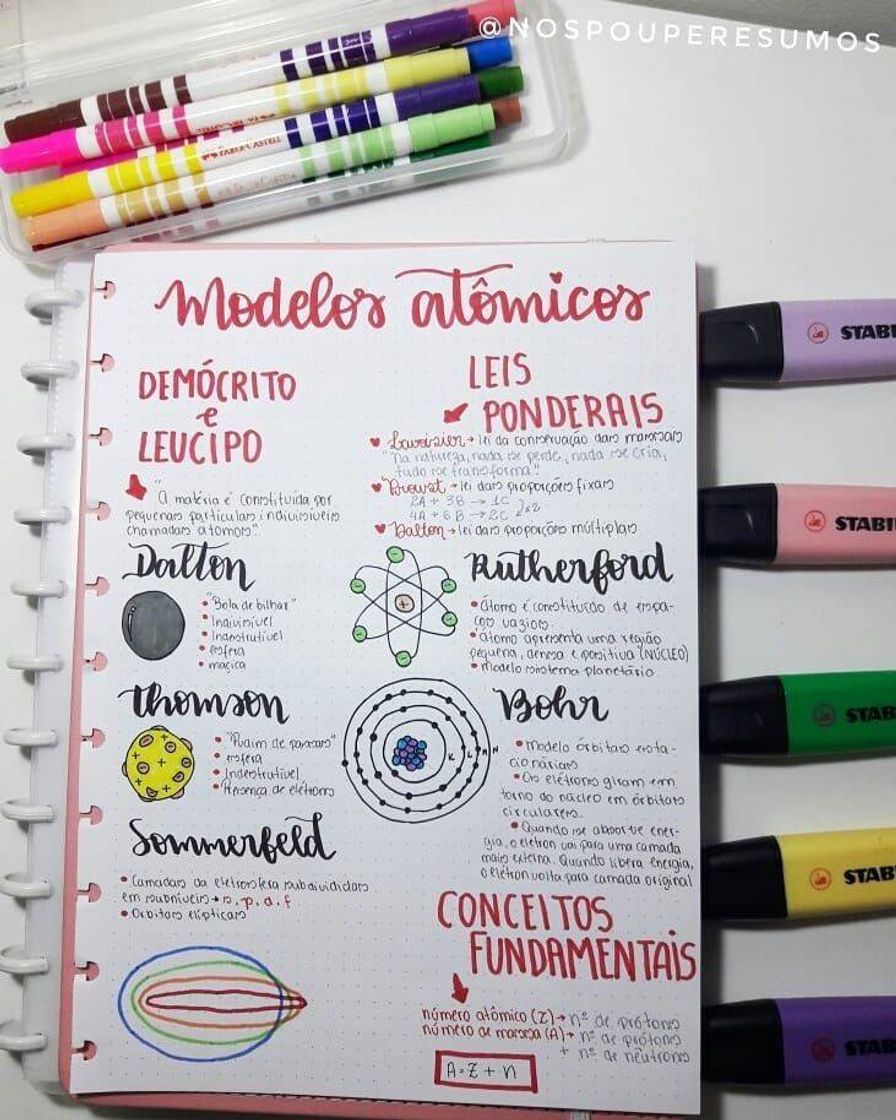 @NOSPOUPERESUMOS
FABER-CASTELL
Modelos atômicos
DEMÓCRITO
e
LEUCIPO
"A matéria é constituída por
pequenas partículas indivisíveis
chamadas átomos".
LEIS
PONDERAIS
Lavoisier → lei da conservação das massas
"Na natureza, nada se perde, nada se cria,
tudo se transforma."
Proust → lei das proporções fixas
2A + 3B → 1C
4A + 6B → 2C 2x2
Dalton → lei das proporções múltiplas
Dalton
"Bola de bilhar"
Indivisível
Indestrutível
esfera
maciça
Rutherford
Átomo é constituído de espa-
ços vazios.
átomo apresenta uma região
pequena, densa e positiva (NÚCLEO)
modelo sistema planetário.
Thomson
"Pudim de passas"
esfera
Indestrutível
Presença de elétrons
K L M N
Bohr
Modelo órbitas esta-
cionárias
Os elétrons giram em
torno do núcleo em órbitas
circulares.
Quando se absorve ener-
gia, o elétron vai para uma camada
mais externa. Quando libera energia,
o elétron volta para camada original
Sommerfeld
Camadas da eletrosfera subdivididas
em subníveis → s, p, d, f
Órbitas elípticas
CONCEITOS
FUNDAMENTAIS
número atômico (Z) → nº de prótons
número de massa (A) → nº de prótons
+ nº de nêutrons
A = Z + n
STABI
STABI
STABI
STABI
STABI